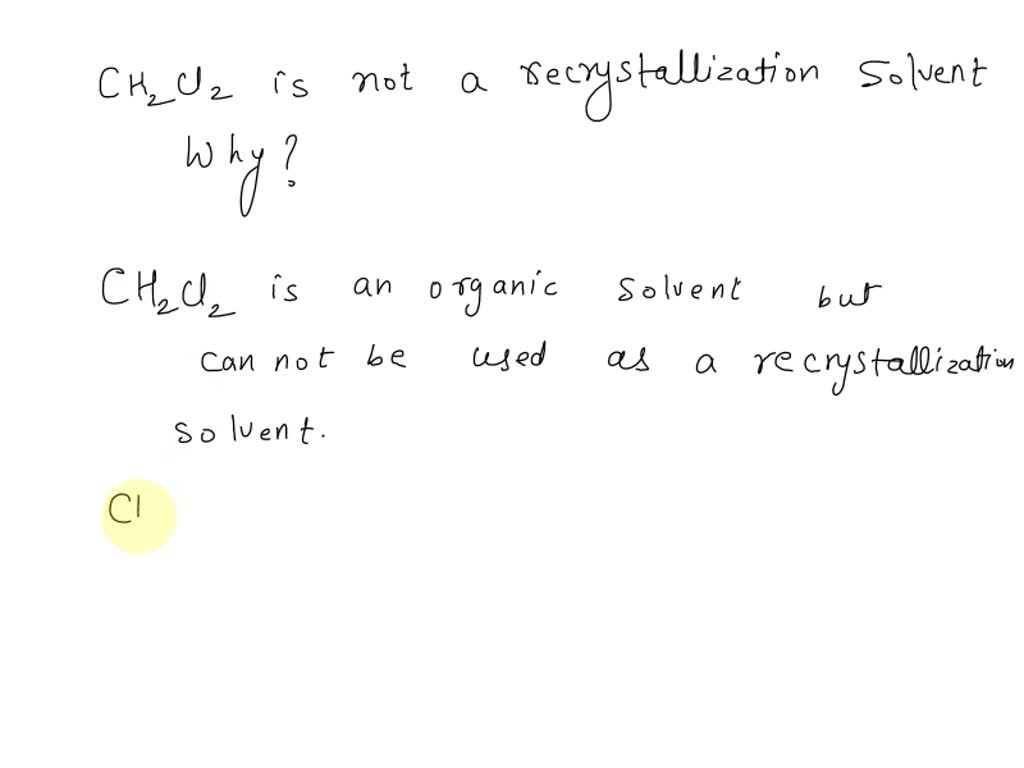 CH₂Cl₂ is not a recrystallization solvent
Why?
CH₂Cl₂ is an organic solvent but
can not be used as a recrystallization
solvent.
Cl